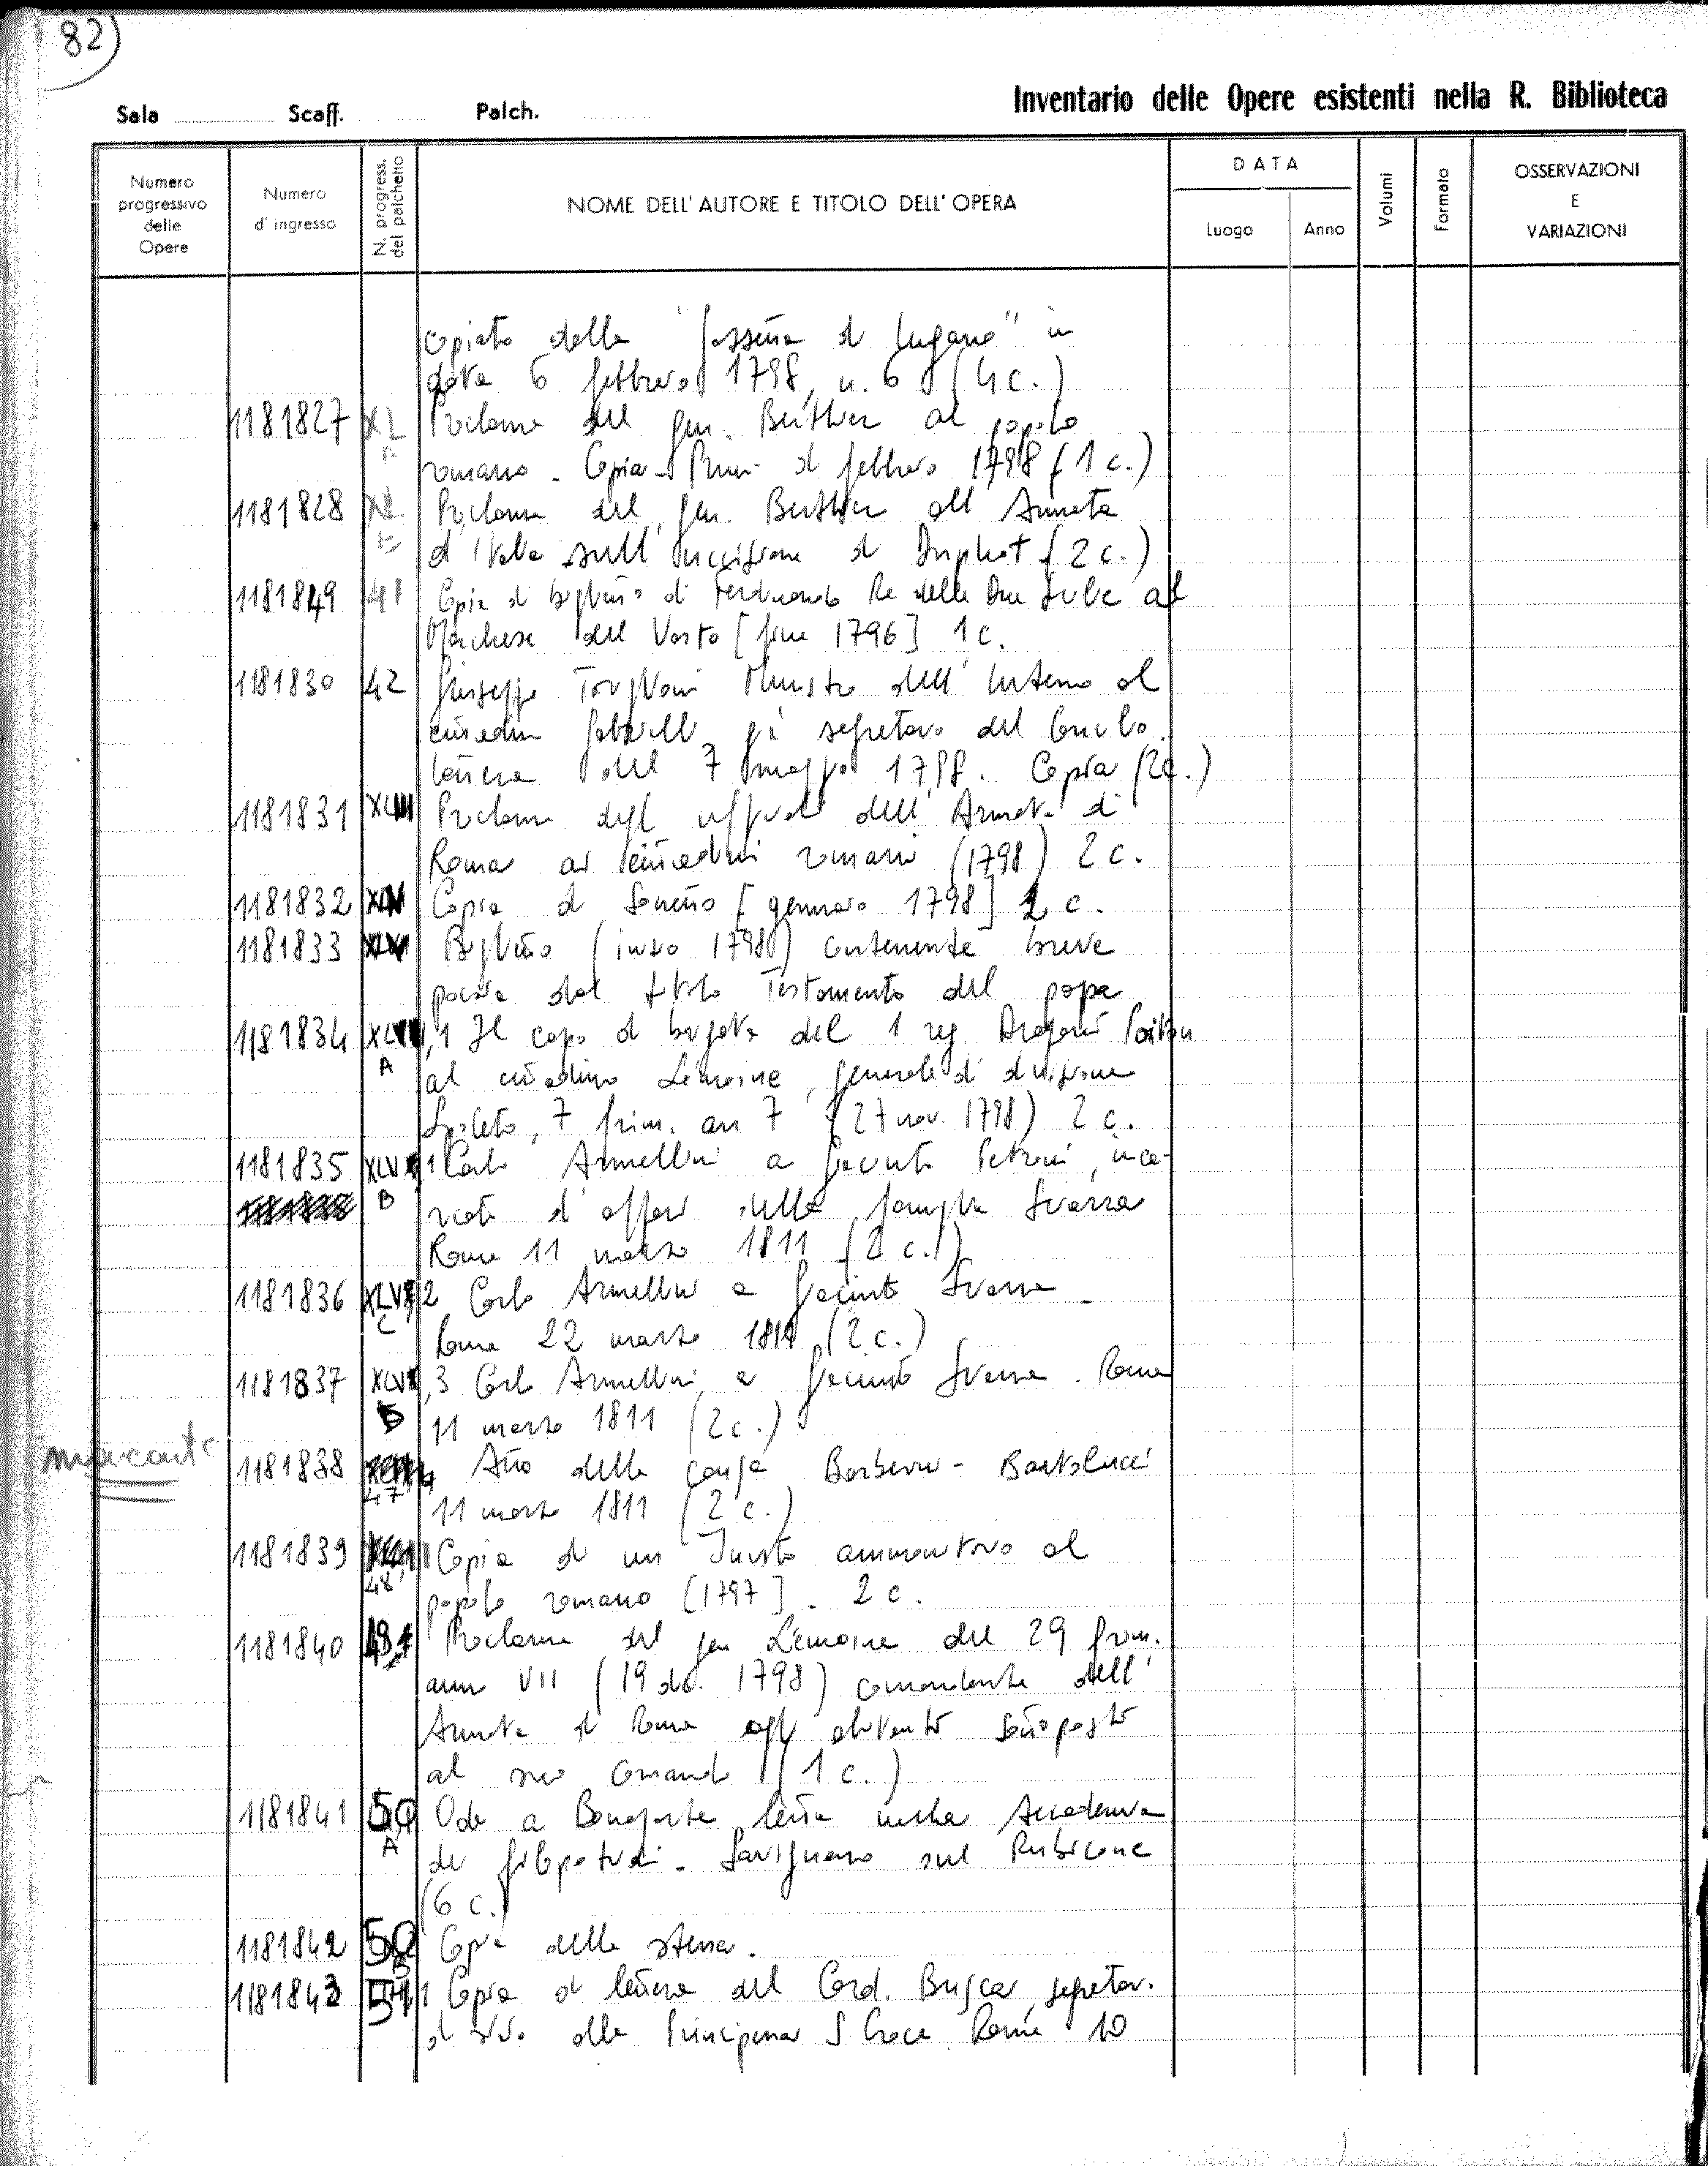 82)
Inventario delle Opere esistenti nella R. Biblioteca
Sala Scaff. Palch.
Numero progressivo delle Opere
Numero d'ingresso
N. progress. del palchetto
NOME DELL'AUTORE E TITOLO DELL'OPERA
DATA
Luogo Anno
Volumi
Formato
OSSERVAZIONI E VARIAZIONI
copiato dalla "Gazzetta di Lugano" in
data 6 febbraio 1798, n. 6 (4 c.)
1181827 XL Proclama del gen. Berthier al popolo
romano. Copia di febbraio 1798 (1 c.)
1181828 Proclama del gen. Berthier all'Armata
d'Italia sull'uccisione di Duphot (2 c.)
1181849 41 Copia di biglietto di Ferdinando Re delle Due Sicilie al
Marchese del Vasto [fine 1796] 1 c.
1181830 42 Giuseppe Torgloni Ministro dell'Interno al
cittadin Gabrielli, già segretario del
lettera del 7 maggio 1798. Copia (2c.)
1181831 XLIII Proclama degli uffiziali dell'Armata di
Roma ai cittadini romani (1798) 2 c.
1181832 XLIV Copia di Sonetto [gennaro 1798] 1 c.
1181833 XLV Biglietto (inizio 1798) contenente breve
poesia dal titolo Testamento del papa
1181834 XLVI,1 A Il capo di brigata del 1 reg Dragoni
al cittadino Lémoine, generale di divisione
Spoleto, 7 frim. an 7 (27 nov. 1798) 2 c.
1181835 XLVI,1 B Carlo Armellini a Giacinto Petroni, inca-
ricato d'affari della famiglia Svarra
Roma 11 marzo 1811 (2 c.)
1181836 XLVI,2 C Carlo Armellini a Giacinto Svarra
Roma 22 marzo 1811 (2 c.)
1181837 XLVI,3 D Carlo Armellini a Giacinto Svarra. Roma
11 marzo 1811 (2 c.)
mancante 1181838 47 Atto della causa Barberini - Bartolucci
11 marzo 1811 (2 c.)
1181839 48 Copia di un Invito ammonitivo al
popolo romano [1797]. 2 c.
1181840 49 Proclama del gen Lémoine del 29 frim.
anno VII (19 dic. 1798) comandante dell'
Armata di Roma agli abitanti sottoposti
al suo comando (1 c.)
1181841 50 A Ode a Bonaparte letta nella Accademia
dei filopatridi. Savignano sul Rubicone
(6 c.)
1181842 50 B Copia della stessa.
1181843 51,1 Copia di lettera del Card. Busca, segretar.
di stato alla Principessa S Croce Roma 10